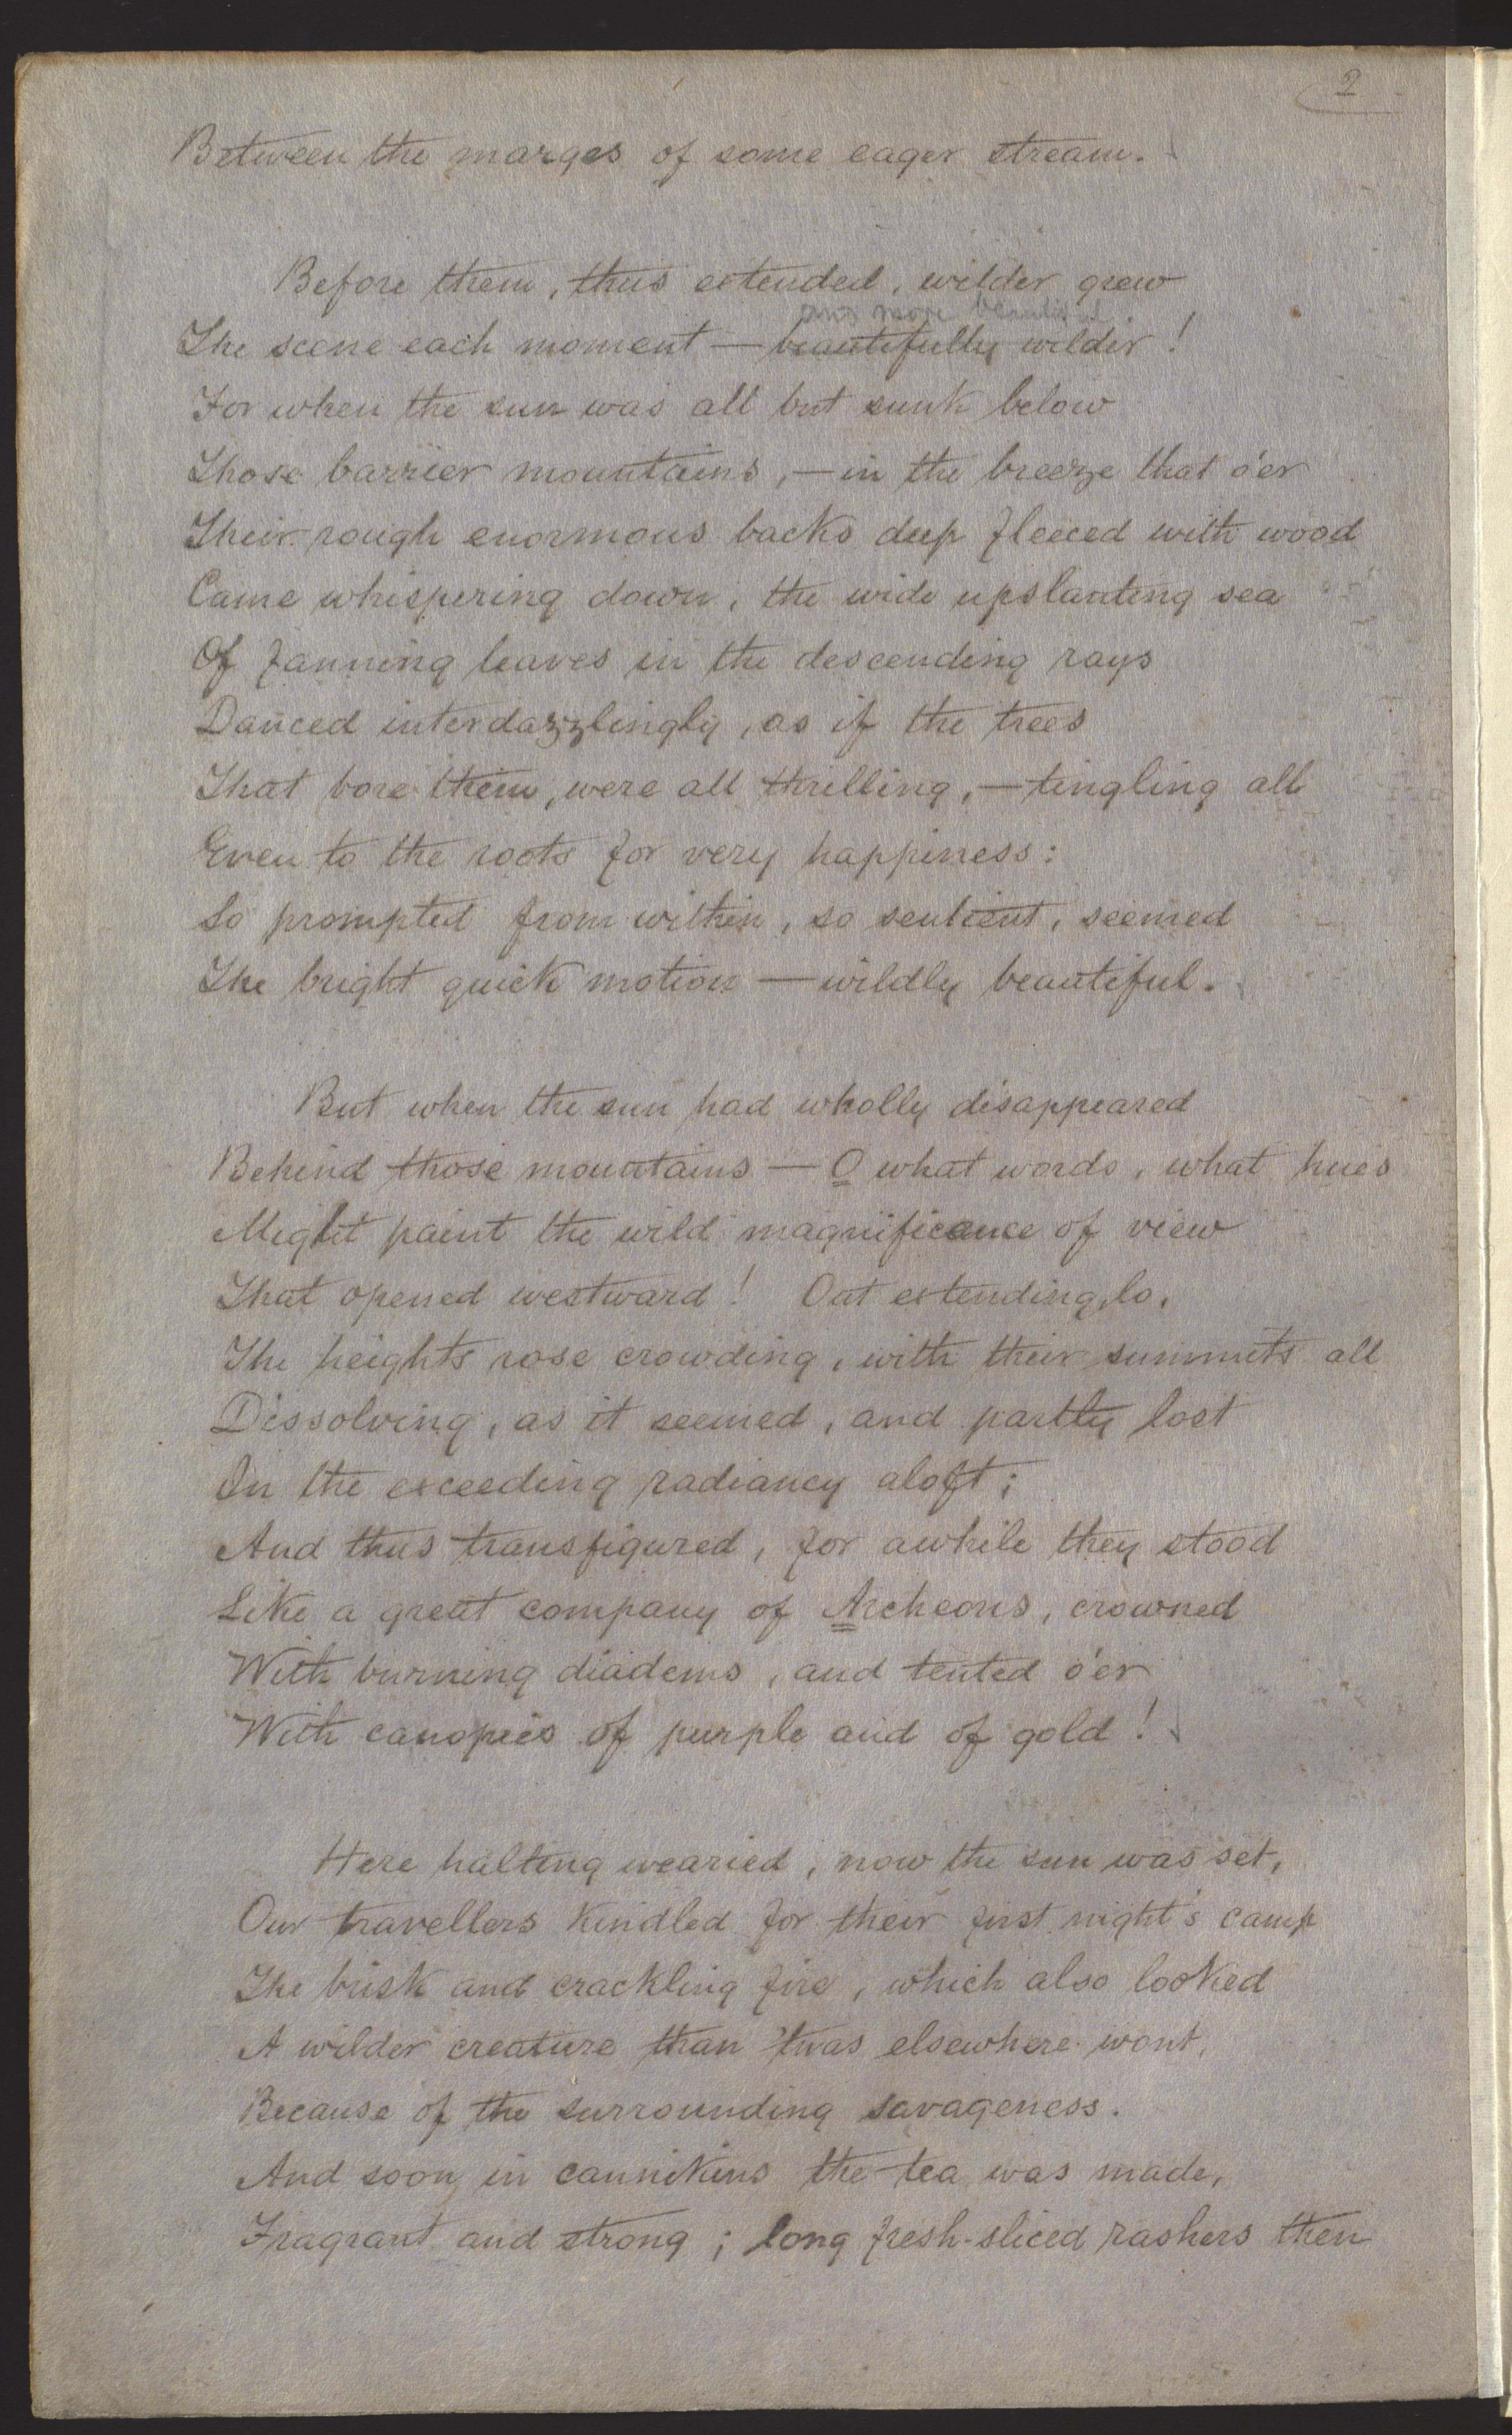 2
Between the marges of some eager stream.
Before them, thus extended, wilder grew
and more beautiful.
The scene each moment — beautifully wilder!
For when the sun was all but sunk below
Those barrier mountains, — in the breeze that o'er
Their rough enormous backs deep fleeced with wood
Came whispering down, the wide upslanting sea
Of fanning leaves in the descending rays
Danced interdazzlingly, as if the trees
That bore them, were all thrilling, — tingling all
Even to the roots for very happiness:
So prompted from within, so sentient, seemed
The bright quick motion — wildly beautiful.
But when the sun had wholly disappeared
Behind those mountains — O what words, what hues
Might paint the wild magnificance of view
That opened westward! Out extending, lo,
The heights rose crowding, with their summits all
Dissolving, as it seemed, and partly lost
In the exceeding radiancy aloft;
And thus transfigured, for awhile they stood
Like a great company of Archeons, crowned
With burning diadems, and tented o'er
With canopies of purple and of gold!
Here halting wearied, now the sun was set,
Our travellers kindled for their first night's camp
The brisk and crackling fire, which also looked
A wilder creature than 'twas elsewhere wont,
Because of the surrounding savageness.
And soon in cannikins the tea was made,
Fragrant and strong; long fresh-sliced rashers then